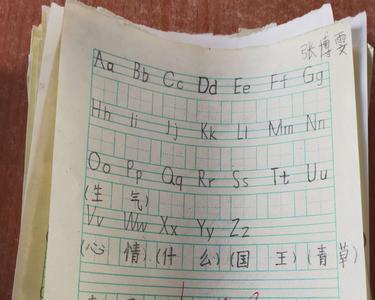 张博雯
Aa Bb Cc Dd Ee Ff Gg
Hh Ii Jj Kk Ll Mm Nn
Oo Pp Qq Rr Ss Tt Uu
(生 气)
Vv Ww Xx Yy Zz
(心 情) (什 么) (国 王) (青 草)